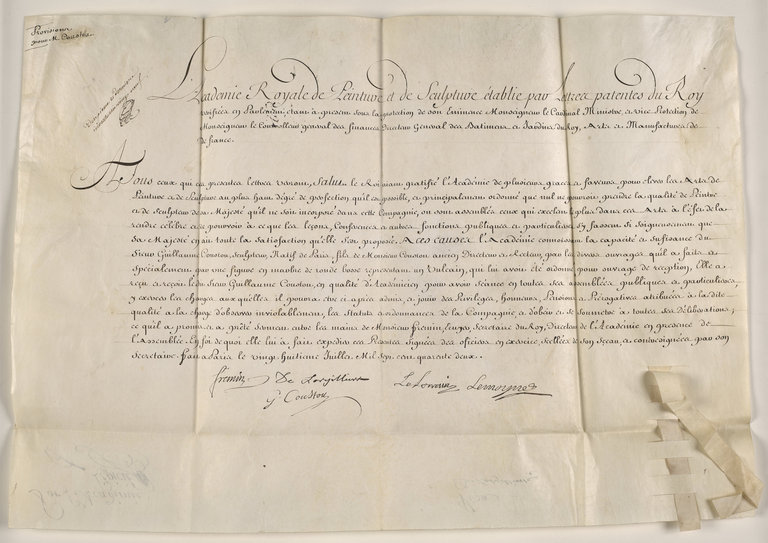 Provisions
pour M. Coustou
L'Academie Royale de Peinture et de Sculpture établie par Lettres patentes du Roy
verifiées en Parlement étant à present sous la protection de son Eminence Monseigneur le Cardinal Ministre, a vice Protection de
Monseigneur le Controlleur general des finances Directeur General des Batimens et Jardins du Roy, Arts et Manufactures de
de france.
A Tous ceux qui ces presentes lettres verront, Salut. le Roi ayant gratifié l'Académie de plusieurs graces et faveurs, pour elever les Arts de
Peinture et de Sculpture au plus haut dégré de perfection qu'il est possible, et principalement ordonné que nul ne pourroit prendre la qualité de Peintre
et de Sculpteur de sa Majesté qu'il ne soit incorporé dans cette Compagnie, où sont assemblés ceux qui excelent le plus dans ces Arts à l'éfet de la
rendre célébre et de pourvoir à ce que les leçons, Conferences et autres fonctions publiques et particulieres s'y fassent si soigneusement que
sa Majesté en ait toute la Satisfaction qu'elle s'est proposé. A ces causes l'Académie connoissant la capacité et sufisance du
Sieur Guillaume Coustou, Sculpteur, Natif de Paris, fils de Monsieur Coustou ancien Directeur et Recteur, par les divers ouvrages qu'il a faits et
spécialement par une figure en marbre de ronde bosse representant un Vulcain, qui lui avoit été ordonné pour ouvrage de reception, Elle a
reçu et reçoit le dit Sieur Guillaume Coustou, en qualité d'Académicien pour avoir séance en toutes ses assemblées publiques et particulieres,
y exercer les charges auxquelles il poura être ci-après admis et jouir des Privileges, honneurs, Pensions et Prérogatives atribuées à la dite
qualité à la charge d'observer inviolablement les Statuts et ordonnances de la Compagnie et d'obéir et se soumettre à toutes ses déliberations;
ce qu'il a promis et a prêté serment entre les mains de Monsieur fremin, Ecuyer, Secretaire du Roy, Directeur de l'Académie en presence de
l'Assemblée. En foi de quoi elle lui a fait expedier ces Presentes Signées des oficiers en exercice, scellées de son sceau, et contresignées par son
Secretaire. fait à Paris le vingt huitieme Juillet Mil Sept cent quarante deux.
fremin De Largilliere Le Lorrain Lemoyne
G Coustou